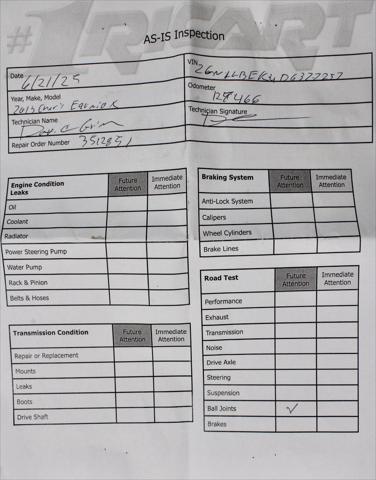 #1
AS-IS Inspection
Date 6/21/25
VIN
Year, Make, Model
Odometer
Technician Name
Technician Signature
Repair Order Number 3512851
Engine Condition Future Attention Immediate Attention
Leaks
Oil
Coolant
Radiator
Power Steering Pump
Water Pump
Rack & Pinion
Belts & Hoses
Transmission Condition Future Attention Immediate Attention
Repair or Replacement
Mounts
Leaks
Boots
Drive Shaft
Braking System Future Attention Immediate Attention
Anti-Lock System
Calipers
Wheel Cylinders
Brake Lines
Road Test Future Attention Immediate Attention
Performance
Exhaust
Transmission
Noise
Drive Axle
Steering
Suspension
Ball Joints ✓
Brakes